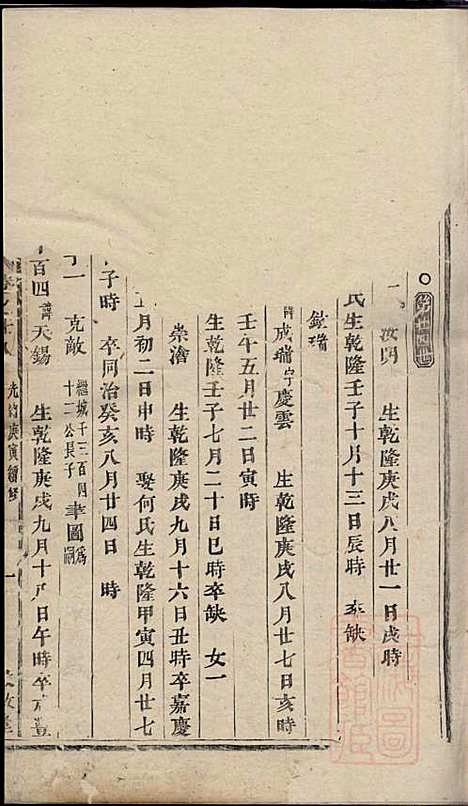 汝明 生乾隆庚戌八月廿一日戌時
氏生乾隆壬子十月十三日辰時 卒缺
鉉瑞
諱成瑞字慶雲 生乾隆庚戌八月廿七日亥時
壬午五月廿二日寅時
生乾隆壬子七月二十日巳時卒缺 女一
崇濬 生乾隆庚戌九月十六日丑時卒嘉慶
五月初二日申時 娶何氏生乾隆甲寅四月廿七
子時 卒同治癸亥八月廿四日 時
丁一 克敵 繼城千三百四十二公長子 圖爲嗣
百四 諱天錫 生乾隆庚戌九月十八日午時卒
光緒庚寅續修 一